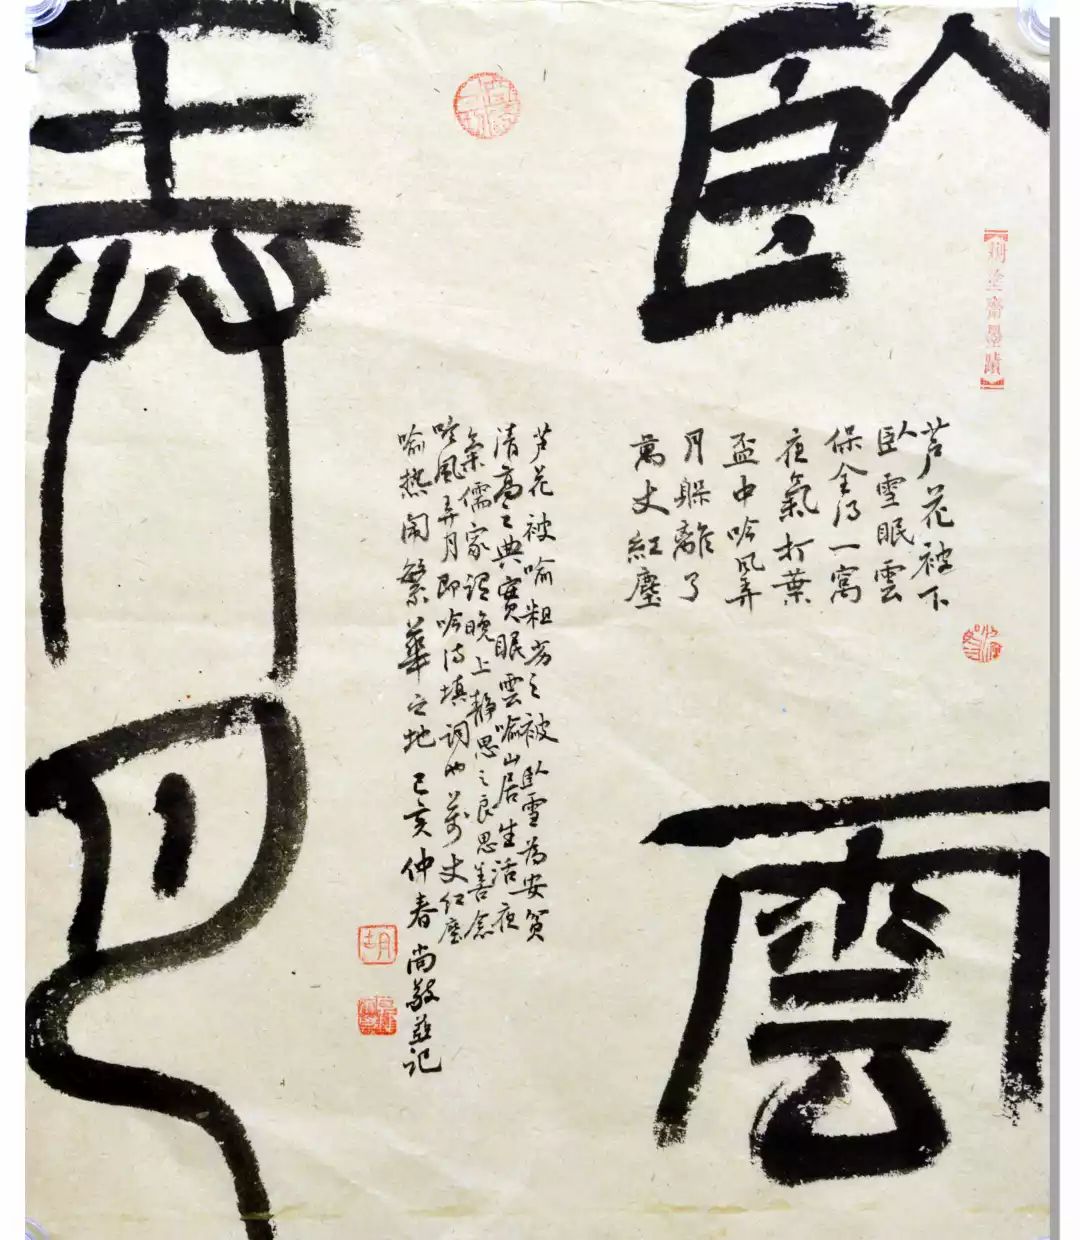 臥雲
弄月
芦花被下
臥雪眠雲
保全得一窝
夜氣竹葉
盃中吟风弄
月躲離了
萬丈紅塵
芦花被喻粗劣之被臥雪為安貧
清高之典實眠雲喻山居生活夜
氣儒家谓晚上静思之良思善念
吟風弄月即吟诗填词也萬丈红塵
喻热闹繁華之地 己亥仲春尚敬並记
齋墨蹟
胡